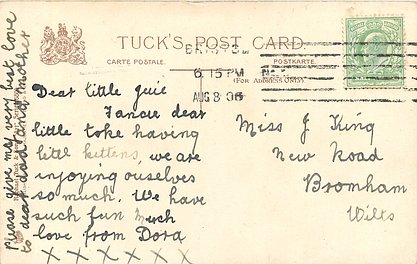 TUCK'S POST CARD.
CARTE POSTALE.
POSTKARTE.
(FOR ADDRESS ONLY)
BRISTOL
6.15 PM
AUG 8 06
Dear little
dear
little toke having
little kittens, we are
injoying ourselves
so much. We have
such fun much
love from Dora
X X X X X X
Please give my very best love
to dear dad and mother
Miss J King
New Road
Bromham
Wilts